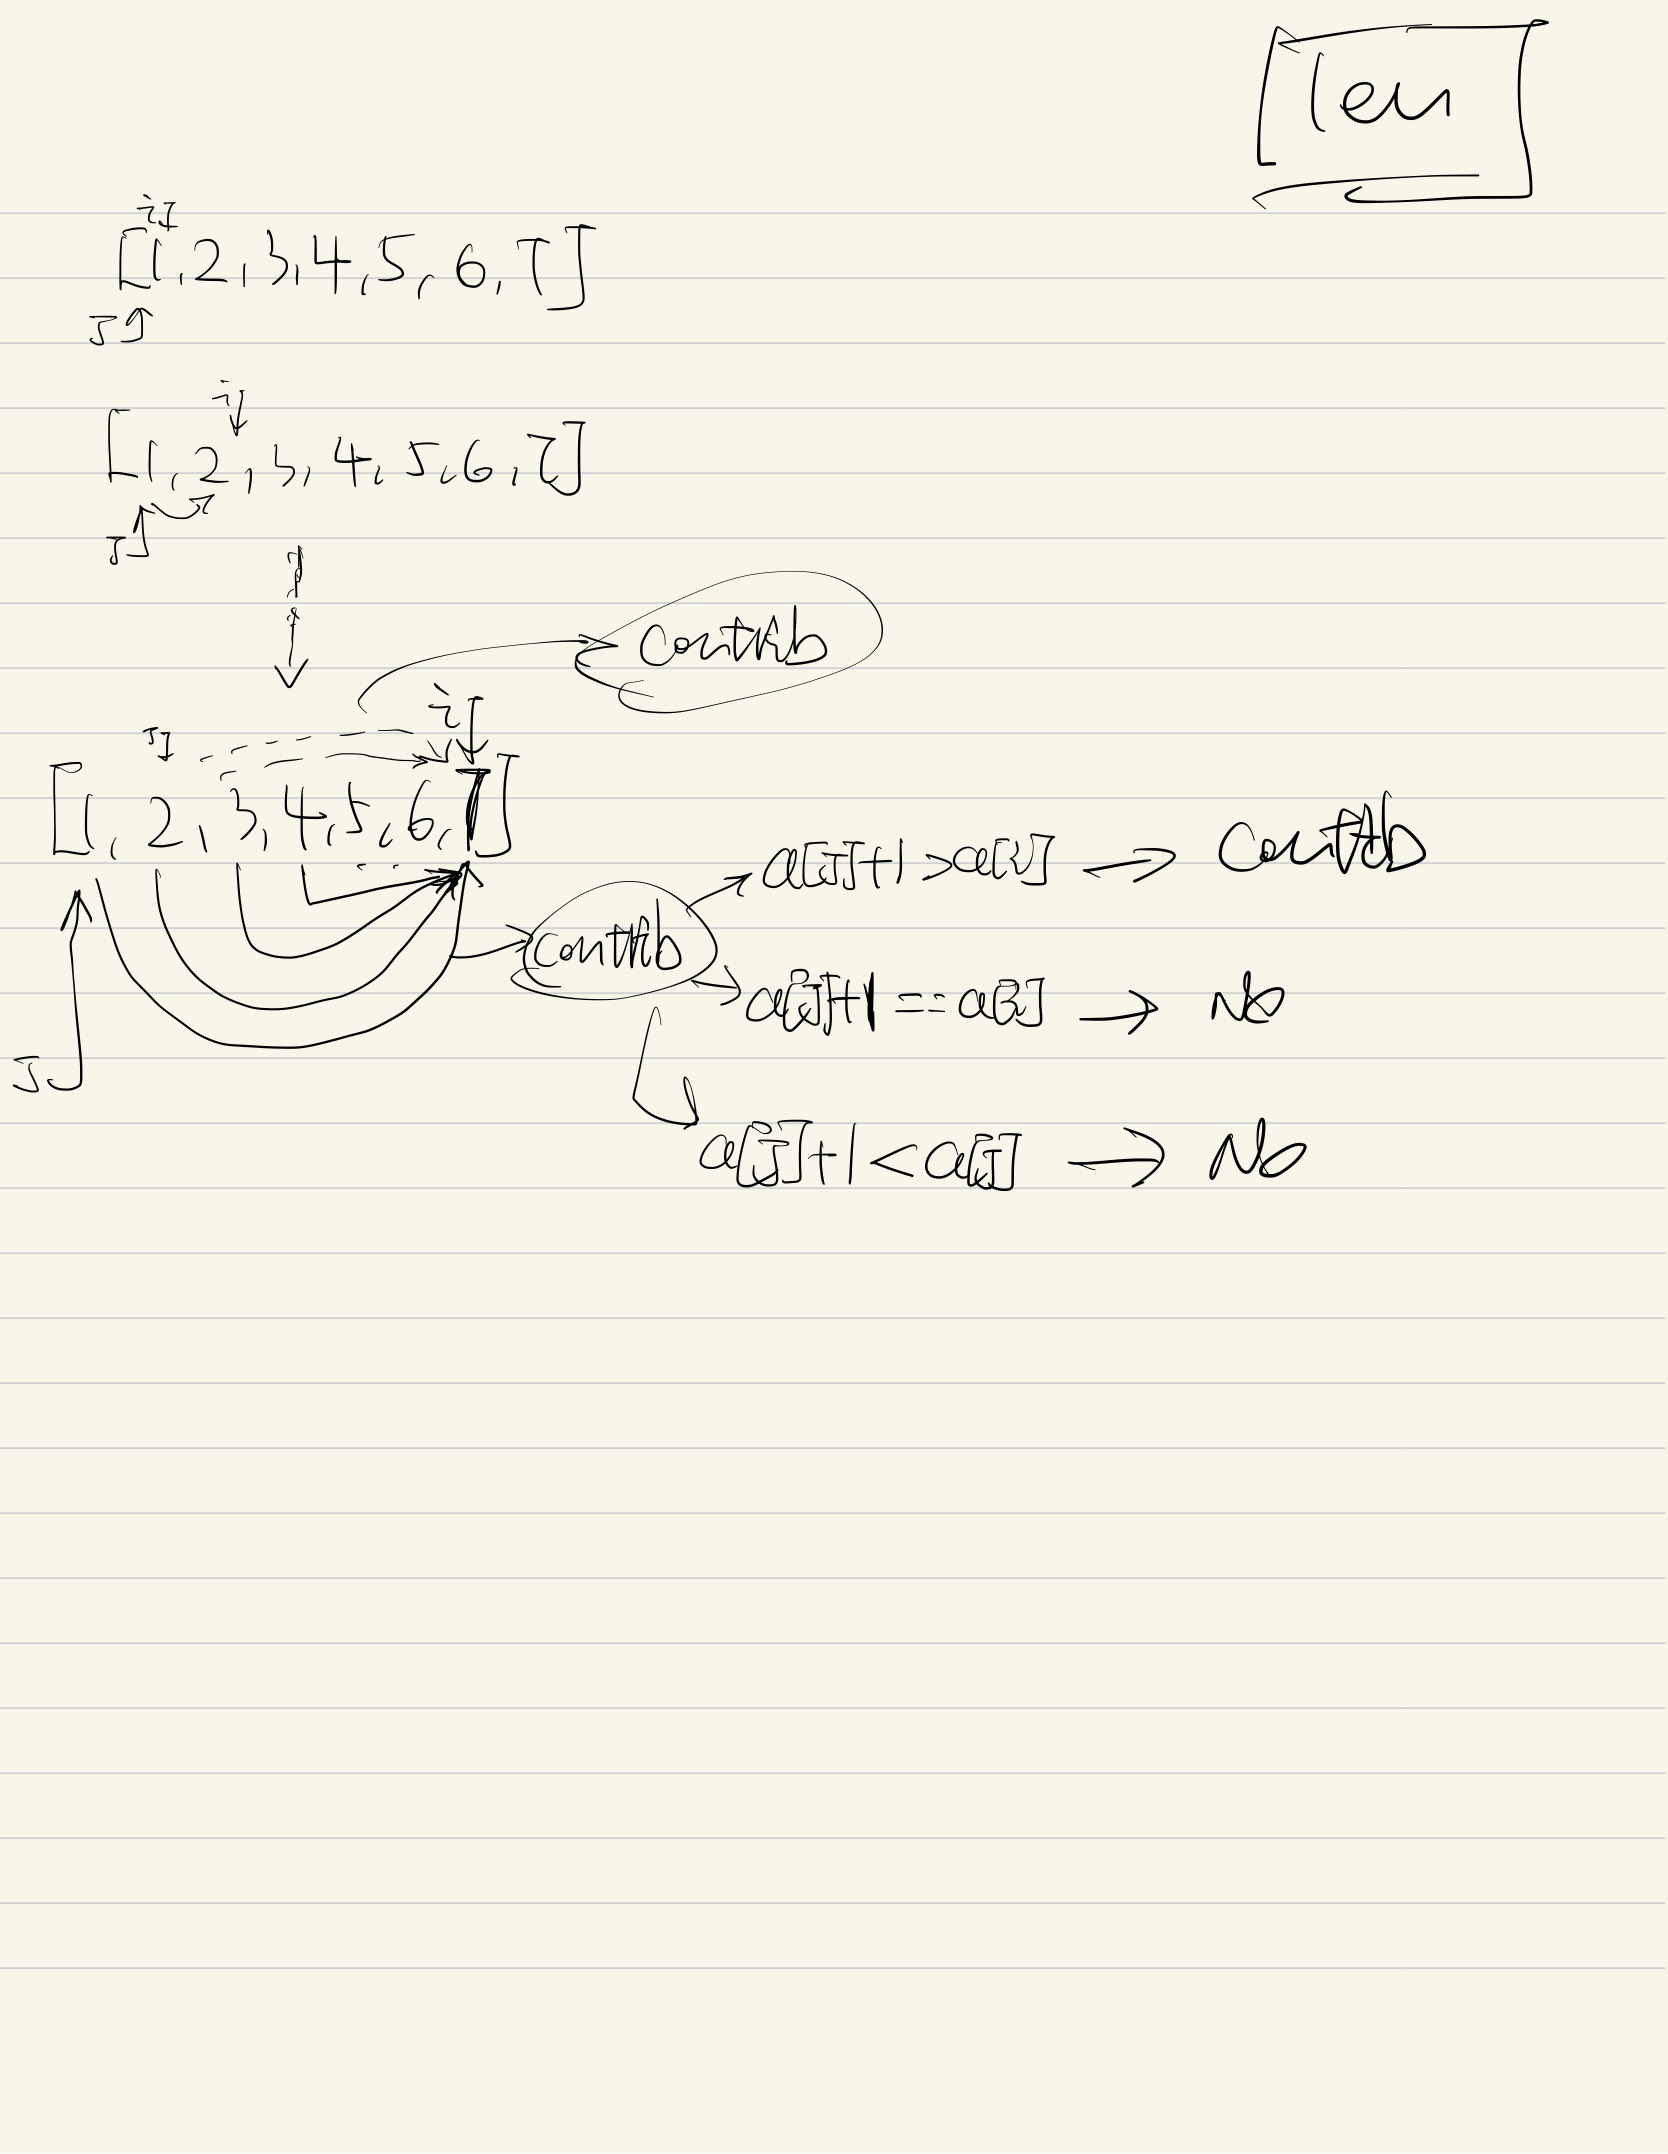 len
i
[1, 2, 3, 4, 5, 6, 7]
J
i
[1, 2, 3, 4, 5, 6, 7]
J
contrib
i
J
[1, 2, 3, 4, 5, 6, 7]
a[J]+1 > a[i] → contrib
contrib
a[J]+1 == a[i] → No
J
a[J]+1 < a[J] → No